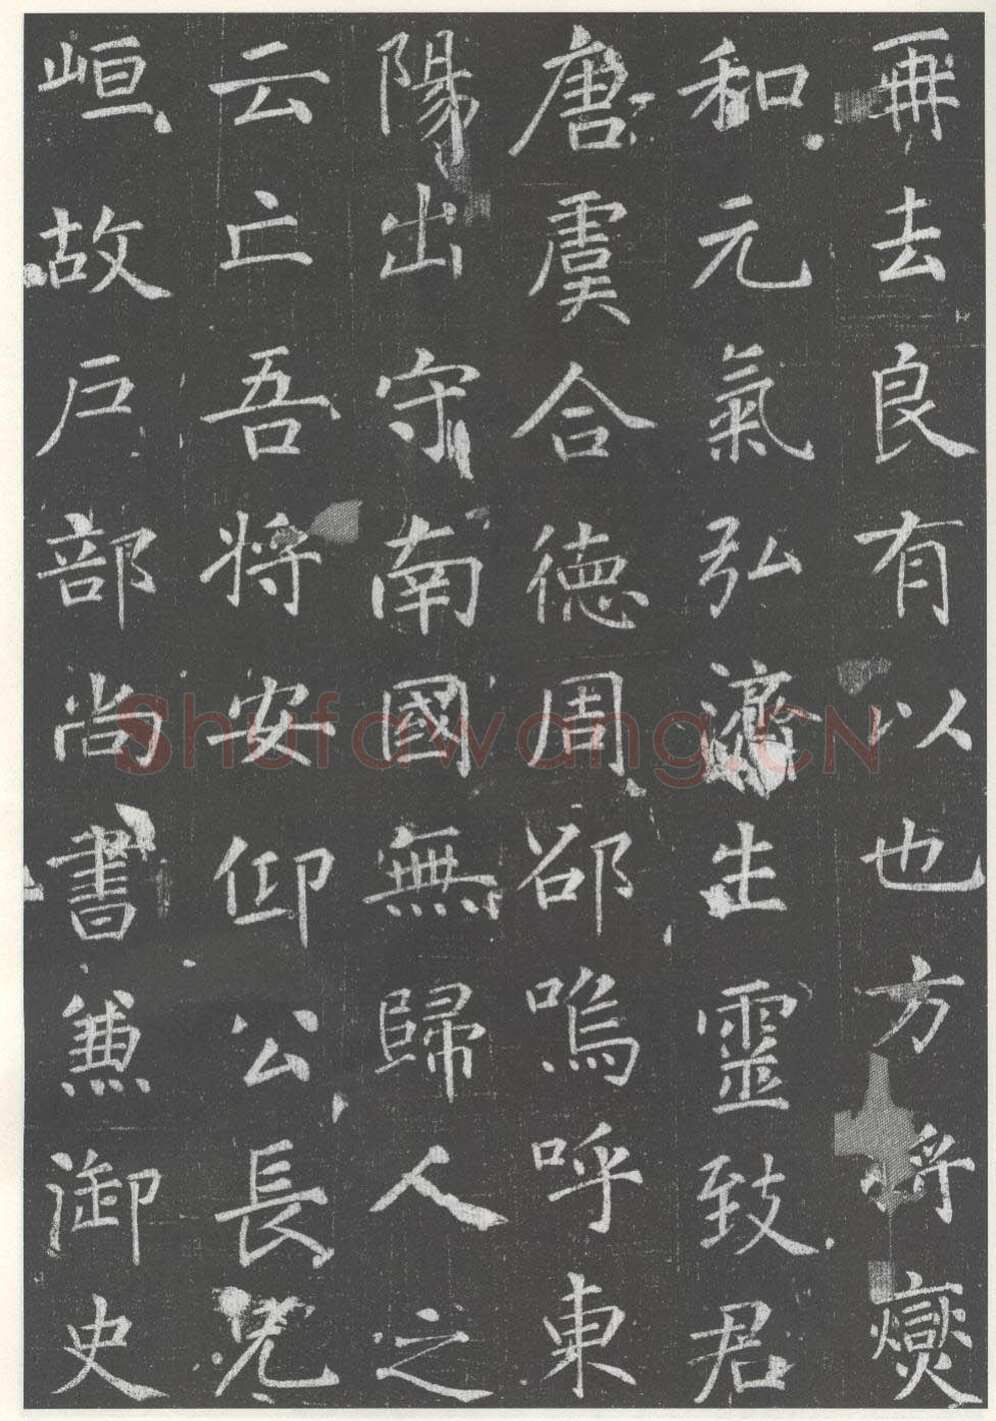 再去良有以也方将燮
和元氣弘濟生靈致君
唐虞合德周邵嗚呼東
陽出守南國無歸人之
云亡吾將安仰公長兄
峘故戶部尚書兼御史
Shufawang.CN